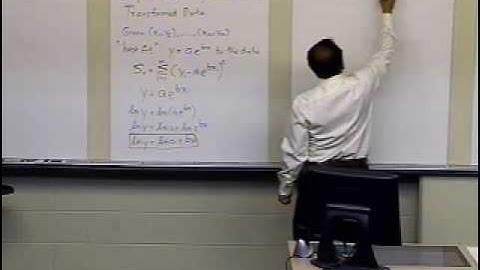 Transformed Data
Given (x₁,y₁), ......, (xₙ,yₙ)
"best fit" y = a e^{bx} to the data
Sᵣ = Σ (yᵢ - a e^{bxᵢ})²
y = a e^{bx}
ln y = ln (a e^{bx})
ln y = ln a + ln e^{bx}
ln y = ln a + bx